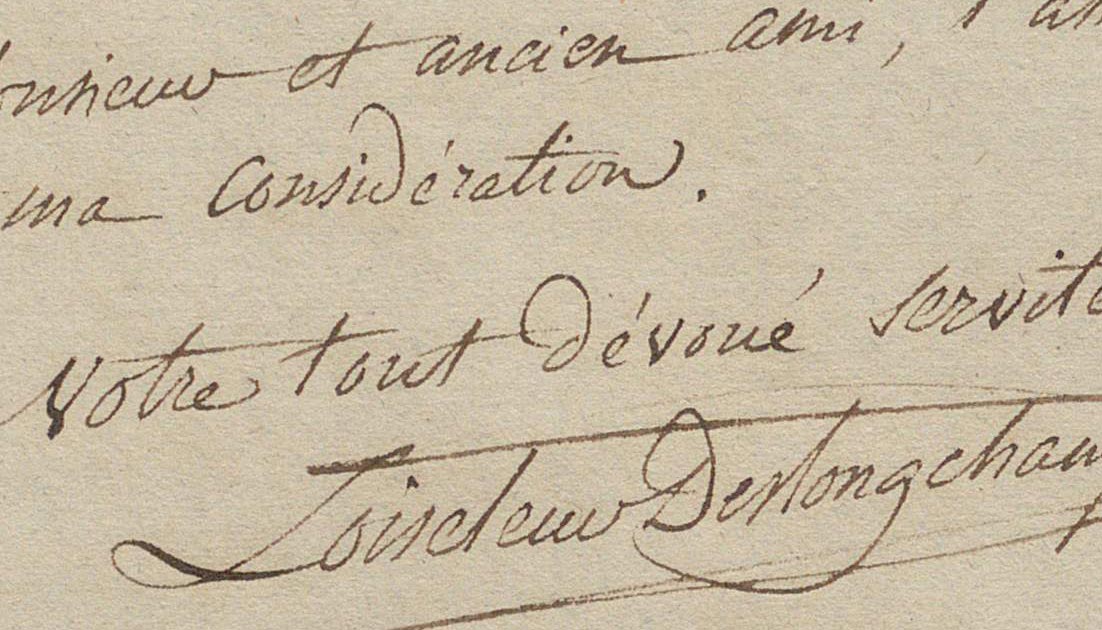 onsieur et ancien ami,
ma considération.
Votre tout dévoué servite
Loiseleur Deslongcham